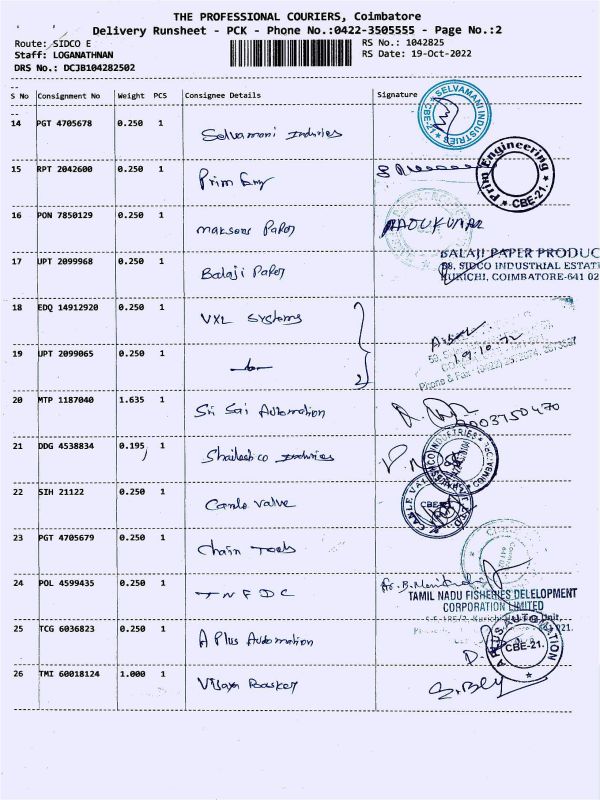 THE PROFESSIONAL COURIERS, Coimbatore
Delivery Runsheet - PCK - Phone No.:0422-3505555 - Page No.:2
Route: SIDCO E
Staff: LOGANATHNAN
DRS No.: DCJB104282502
RS No.: 1042825
RS Date: 19-Oct-2022
S No Consignment No Weight PCS Consignee Details Signature
14 PGT 4705678 0.250 1 Selvamani Industries
SELVAMANI INDUSTRIES CBE-21
15 RPT 2042600 0.250 1 Prim Eng
Prim Engineering CBE-21.
16 PON 7850129 0.250 1 Paper
17 UPT 2099968 0.250 1 Balaji Paper
BALAJI PAPER PRODUC
SIDCO INDUSTRIAL ESTAT
KURICHI, COIMBATORE-641 02
18 EDQ 14912920 0.250 1 VXL Systems
19 UPT 2099065 0.250 1
Phone & Fax
20 MTP 1187040 1.635 1 Sri Sai Automation
21 DDG 4538834 0.195 1 Industries
22 SIH 21122 0.250 1 Valve
CBE
23 PGT 4705679 0.250 1 Chain Tools
24 POL 4599435 0.250 1 TNFDC
TAMIL NADU FISHERIES DELELOPMENT
CORPORATION LIMITED
Unit,
021.
25 TCG 6036823 0.250 1 A Plus Automation
A PLUS AUTOMATION CBE-21.
26 TMI 60018124 1.000 1 Vijaya Basker